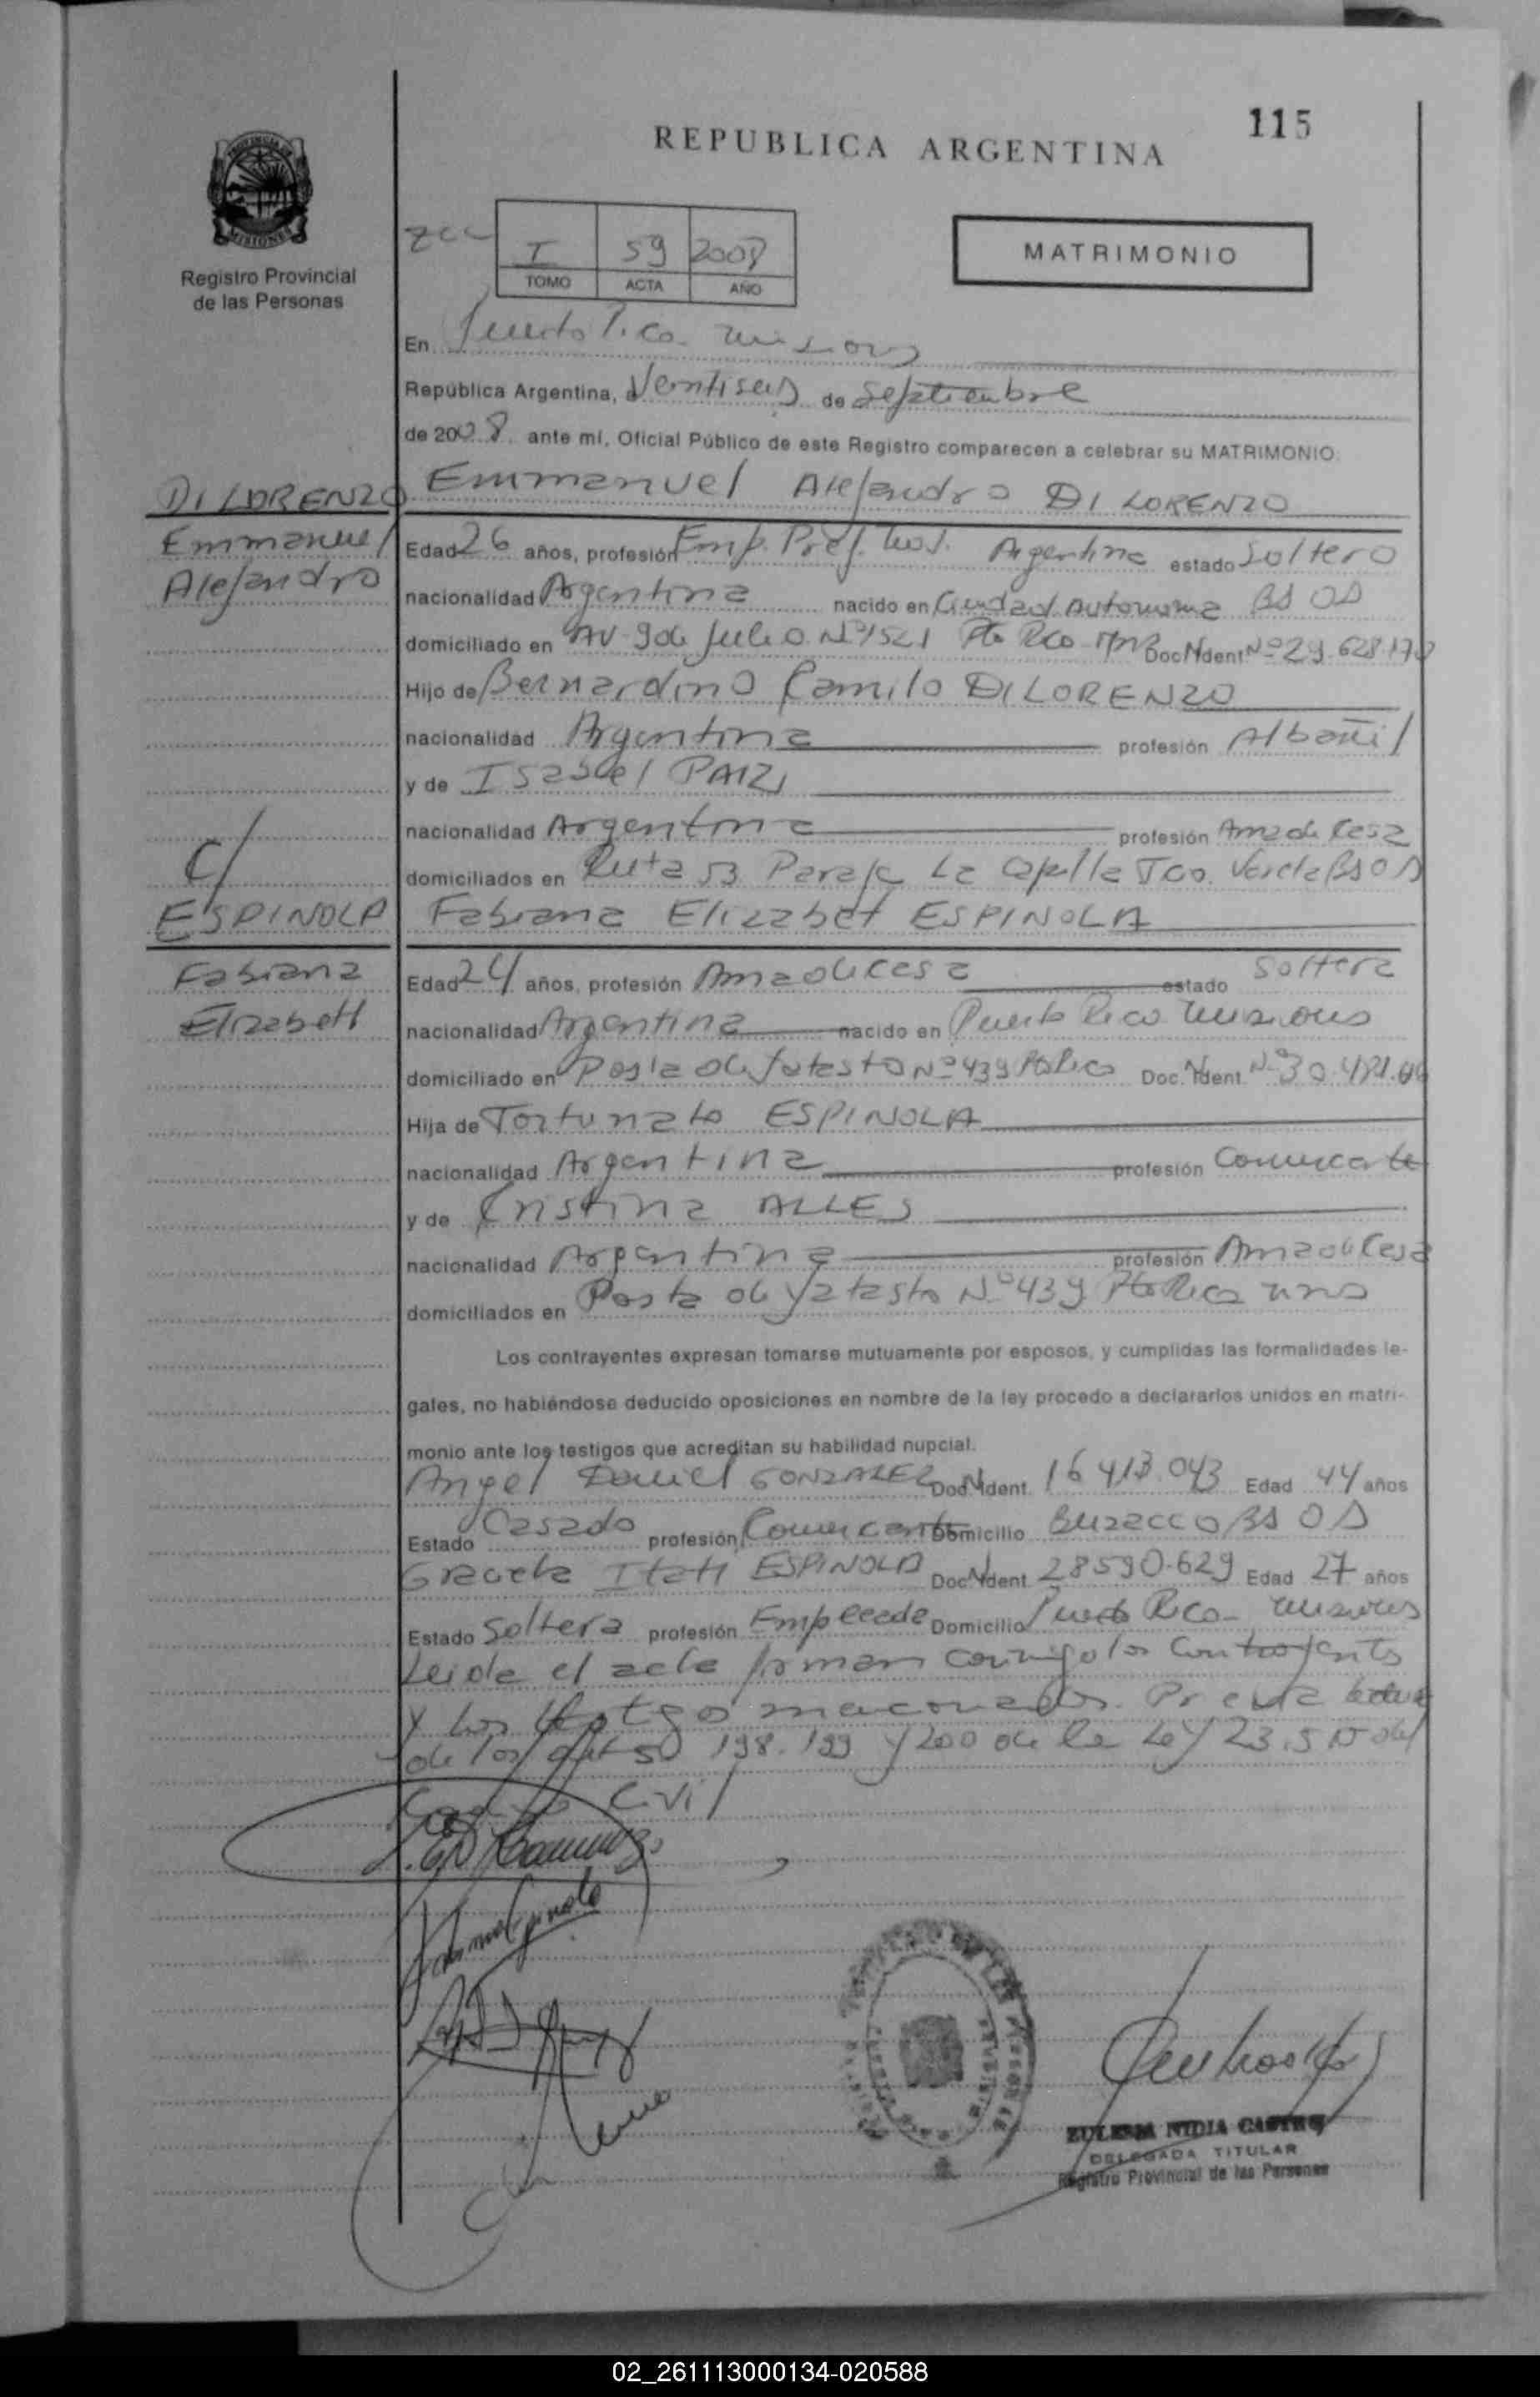 115
REPUBLICA ARGENTINA
PROVINCIA DE
MISIONES
Registro Provincial
de las Personas
I 59 2008
TOMO ACTA AÑO
MATRIMONIO
En Puerto Rico Misiones
República Argentina, a Ventiseis de Septiembre
de 2008 ante mí, Oficial Público de este Registro comparecen a celebrar su MATRIMONIO:
DI LORENZO Emmanuel Alejandro DI LORENZO
Emmanuel
Alejandro
Edad 26 años, profesión Emp. Pref. Argentina estado Soltero
nacionalidad Argentina nacido en Ciudad Autonoma BS OS
domiciliado en AV 9 de Julio Nº 1521 Pto Rco Doc. Ident Nº 29.628.178
Hijo de Bernardino Camilo DI LORENZO
nacionalidad Argentina profesión Albañil
y de Isabel
nacionalidad Argentina profesión Ama de Casa
domiciliados en Ruta 53 Paraje La Capilla BS OS
C/
ESPINOLA Fabiana Elizabet ESPINOLA
Fabiana
Elizabett
Edad 24 años, profesión Ama de casa estado Soltera
nacionalidad Argentina nacido en Puerto Rico Misiones
domiciliado en Posta de Yatasto Nº 439 Pto Rico Doc. Ident Nº 30.
Hija de Fortunato ESPINOLA
nacionalidad Argentina profesión Comerciante
y de Cristina ALLES
nacionalidad Argentina profesión Ama de Casa
domiciliados en Posta de Yatasto Nº 439 Pto Rico
Los contrayentes expresan tomarse mutuamente por esposos, y cumplidas las formalidades le-
gales, no habiéndose deducido oposiciones en nombre de la ley procedo a declararlos unidos en matri-
monio ante los testigos que acreditan su habilidad nupcial.
Angel Daniel GONZALEZ Doc. Ident. 16 413.043 Edad 44 años
Estado Casado profesión Comerciante Domicilio BS OS
Graciela Itati ESPINOLA Doc. Ident. 28590.629 Edad 27 años
Estado Soltera profesión Empleada Domicilio Puerto Rico - Misiones
Leida el acta firman conmigo los Contrayentes
y los testigo mencionados. Previa lectura
de los 198. 199 y 200 de la Ley 23.515 del
Civil
ZULEMA NIDIA CASTRO
DELEGADA TITULAR
Registro Provincial de las Personas
02_261113000134-020588